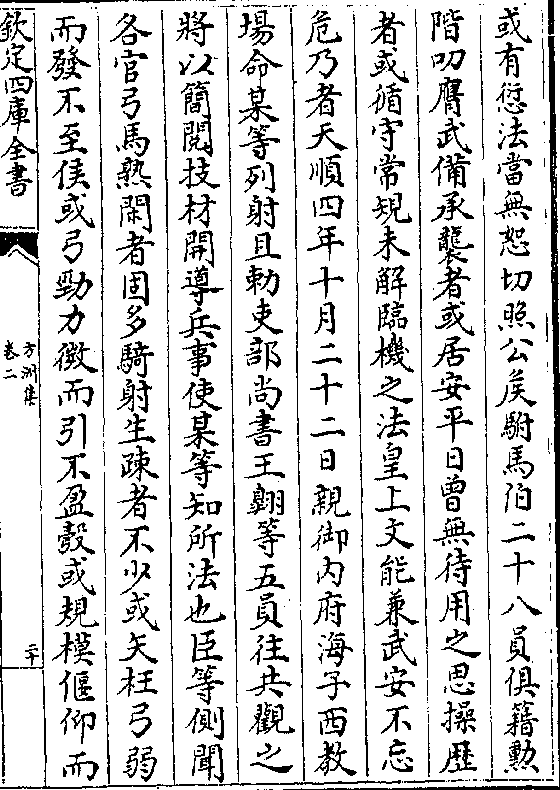 或有愆法當無恕切照公侯駙馬伯二十八員俱籍勲
階叨膺武備承襲者或居安平日曾無待用之思操歴
者或循守常規未解臨機之法皇上文能兼武安不忘
危乃者天順四年十月二十二日親御内府海子西教
場命某等列射且勅吏部尚書王翺等五員往共觀之
將以簡閲技材開導兵事使某等知所法也臣等側聞
各官弓馬熟閑者固多騎射生疎者不少或矢枉弓弱
而發不至侯或弓勁力微而引不盈彀或規模偃仰而
欽定四庫全書
方洲集
卷二
二十